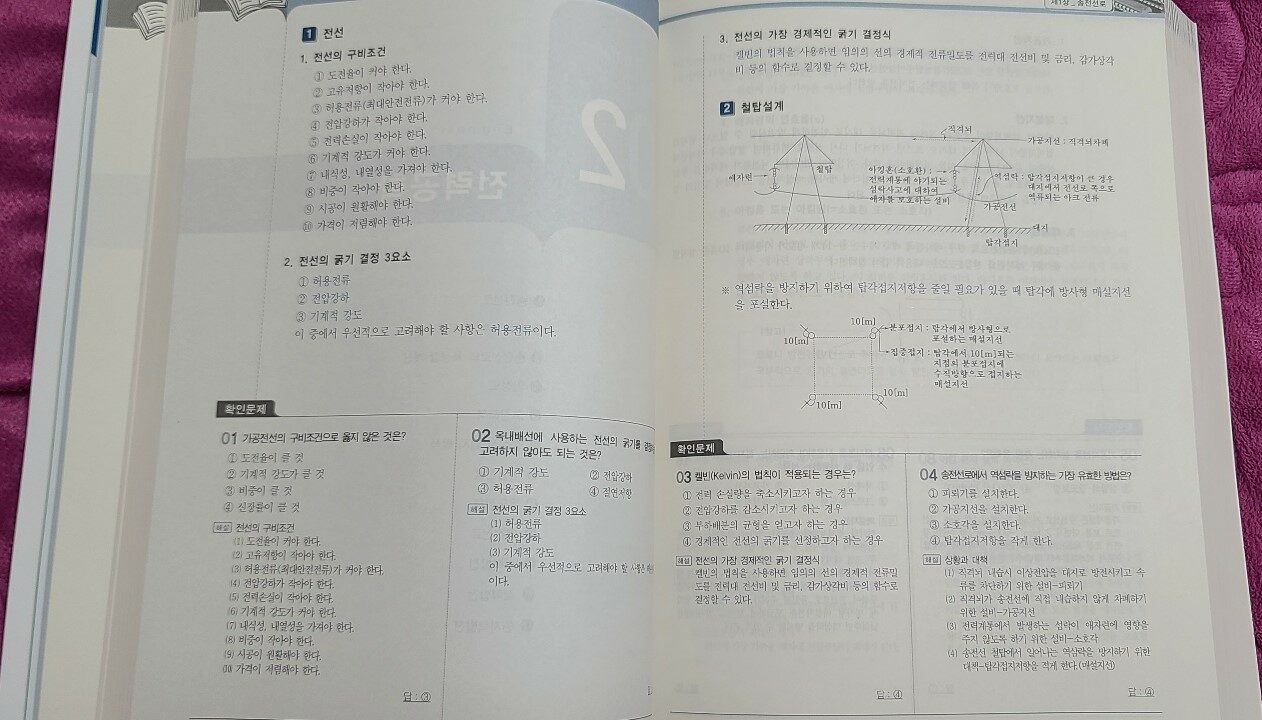 1 전선
1. 전선의 구비조건
① 도전율이 커야 한다.
② 고유저항이 작아야 한다.
③ 허용전류(최대안전전류)가 커야 한다.
④ 전압강하가 작아야 한다.
⑤ 전력손실이 작아야 한다.
⑥ 기계적 강도가 커야 한다.
⑦ 내식성, 내열성을 가져야 한다.
⑧ 비중이 작아야 한다.
⑨ 시공이 원활해야 한다.
⑩ 가격이 저렴해야 한다.
2. 전선의 굵기 결정 3요소
① 허용전류
② 전압강하
③ 기계적 강도
이 중에서 우선적으로 고려해야 할 사항은 허용전류이다.
확인문제
01 가공전선의 구비조건으로 옳지 않은 것은?
① 도전율이 클 것
② 기계적 강도가 클 것
③ 비중이 클 것
④ 신장율이 클 것
해설 전선의 구비조건
(1) 도전율이 커야 한다.
(2) 고유저항이 작아야 한다.
(3) 허용전류(최대안전전류)가 커야 한다.
(4) 전압강하가 작아야 한다.
(5) 전력손실이 작아야 한다.
(6) 기계적 강도가 커야 한다.
(7) 내식성, 내열성을 가져야 한다.
(8) 비중이 작아야 한다.
(9) 시공이 원활해야 한다.
(10) 가격이 저렴해야 한다.
답 : ③
02 옥내배선에 사용하는 전선의 굵기를
고려하지 않아도 되는 것은?
① 기계적 강도 ② 전압강하
③ 허용전류 ④ 절연저항
해설 전선의 굵기 결정 3요소
(1) 허용전류
(2) 전압강하
(3) 기계적 강도
이 중에서 우선적으로 고려해야 할
이다.
제1장_송전선로
3. 전선의 가장 경제적인 굵기 결정식
켈빈의 법칙을 사용하면 임의의 선의 경제적 전류밀도를 전력대 전선비 및 금리, 감가상각
비 등의 함수로 결정할 수 있다.
2 철탑설계
직격뢰
가공지선 : 직격뢰차폐
애자련
철탑
아킹혼(소호환) :
전력계통에 야기되는
섬락사고에 대하여
애자를 보호하는 설비
역섬락 : 탑각접지저항이 큰 경우
대지에서 전선로 쪽으로
역류되는 아크 전류
가공전선
대지
탑각접지
※ 역섬락을 방지하기 위하여 탑각접지저항을 줄일 필요가 있을 때 탑각에 방사형 매설지선
을 포설한다.
10[m]
10[m]
10[m]
10[m]
분포접지 : 탑각에서 방사형으로
포설하는 매설지선
집중접지 : 탑각에서 10[m]되는
지점의 분포접지에
수직방향으로 접지하는
매설지선
확인문제
03 켈빈(Kelvin)의 법칙이 적용되는 경우는?
① 전력 손실량을 축소시키고자 하는 경우
② 전압강하를 감소시키고자 하는 경우
③ 부하배분의 균형을 얻고자 하는 경우
④ 경제적인 전선의 굵기를 선정하고자 하는 경우
해설 전선의 가장 경제적인 굵기 결정식
켈빈의 법칙을 사용하면 임의의 선의 경제적 전류밀
도를 전력대 전선비 및 금리, 감가상각비 등의 함수로
결정할 수 있다.
답 : ④
04 송전선로에서 역섬락을 방지하는 가장 유효한 방법은?
① 피뢰기를 설치한다.
② 가공지선을 설치한다.
③ 소호각을 설치한다.
④ 탑각접지저항을 적게 한다.
해설 상황과 대책
(1) 직격뢰 내습시 이상전압을 대지로 방전시키고 속
류를 차단하기 위한 설비-피뢰기
(2) 직격뢰가 송전선에 직접 내습하지 않게 차폐하기
위한 설비-가공지선
(3) 전력계통에서 발생하는 섬락이 애자련에 영향을
주지 않도록 하기 위한 설비-소호각
(4) 송전선 철탑에서 일어나는 역섬락을 방지하기 위한
대책-탑각접지저항을 적게 한다(매설지선)
답 : ④